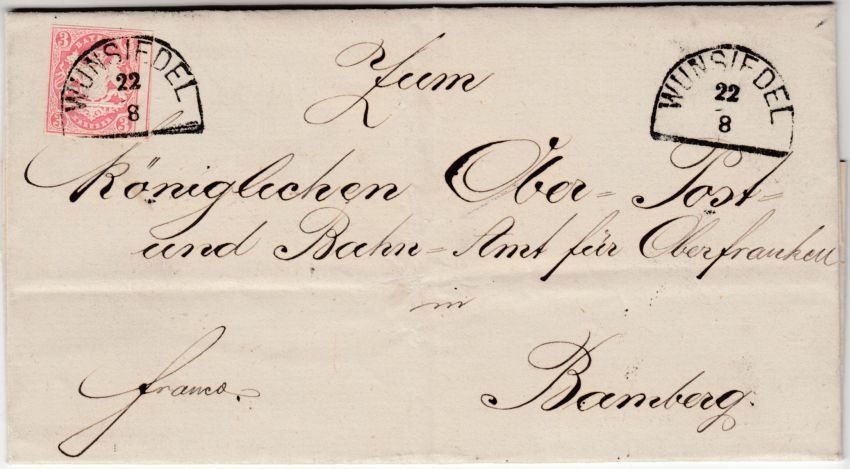 3
BAYERN
3 3
KREUZER
WUNSIEDEL
22
8
WUNSIEDEL
22
8
Zum
königlichen Ober-Post-
und Bahn-Amt für Oberfranken
in
Bamberg.
franco.